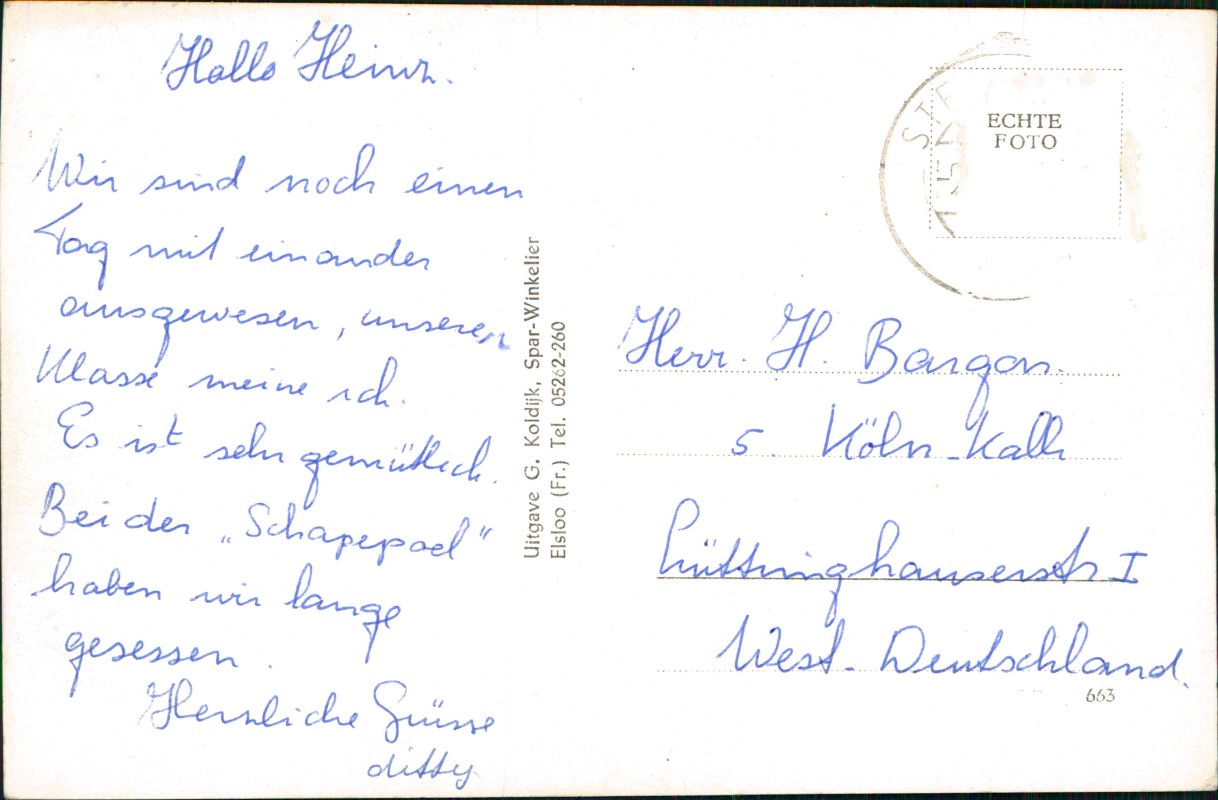 Hallo Heinz.
Wir sind noch einen
Tag mit einander
ausgewesen, unseren
Klasse meine ich.
Es ist sehr gemütlich.
Bei der „Schapepoel"
haben wir lange
gesessen.
Herzliche Grüsse
ditty
Uitgave G. Koldijk, Spar-Winkelier
Elsloo (Fr.) Tel. 05262-260
ECHTE
FOTO
Herr. H. Bargon.
5. Köln-Kalk
Lüttringhauserstr I
West-Deutschland.
663